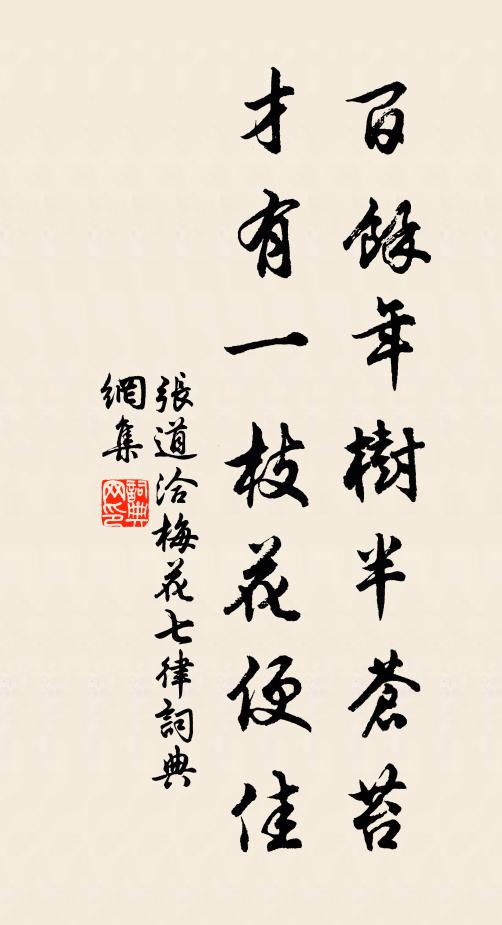 百餘年樹半蒼苔
才有一枝花便佳
張道洽梅花七律詞典
網集
詞典
网印